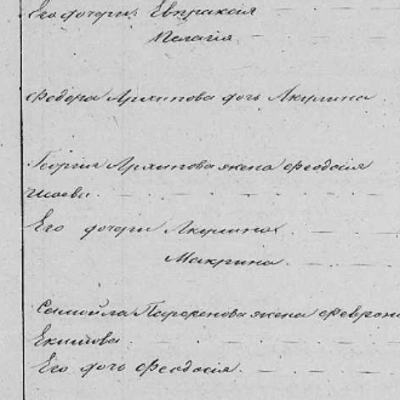 Его дочери: Евпраксія
Пелагія
Федора Архипова дочь Акулина
Георгія Архипова жена Феодосія
Исаева
Его дочери Акулина
Макрина
Самойла Парфенова жена Феврон
Екимова
Его дочь Феодосія